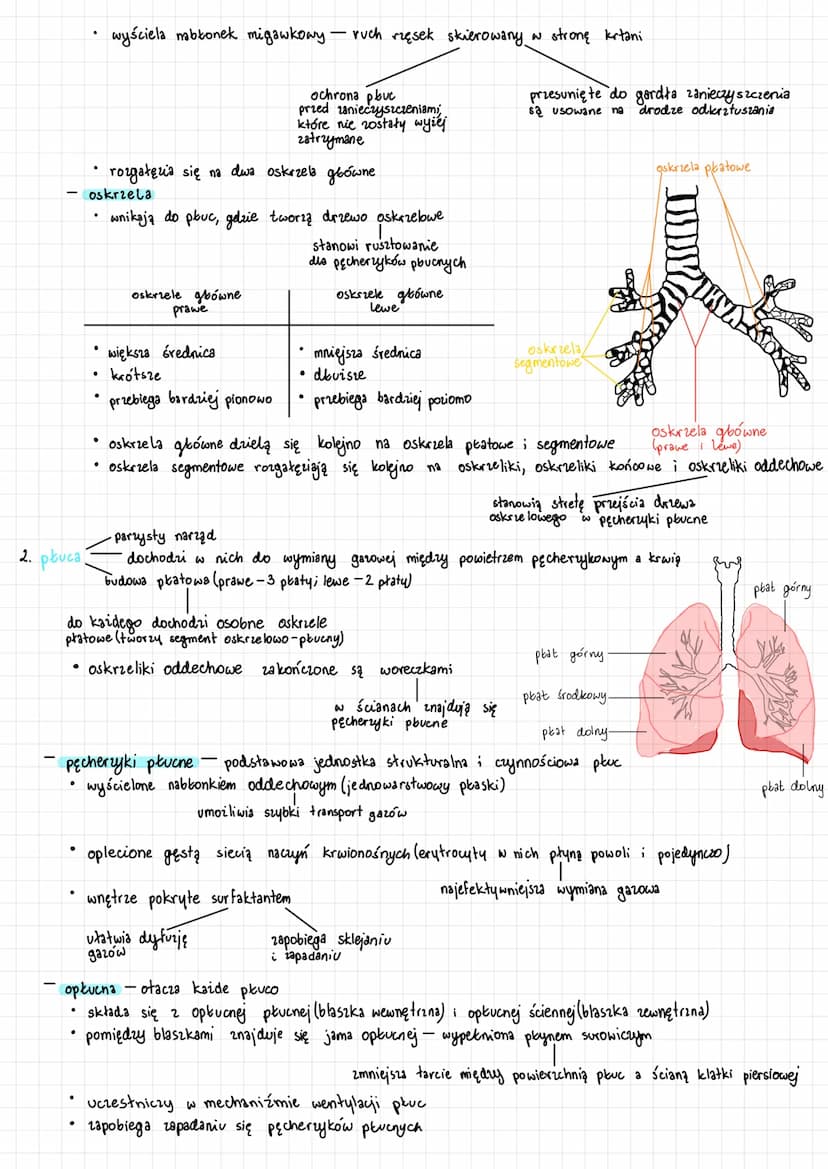 • wyściela nabłonek migawkowy — ruch rzęsek skierowany w stronę krtani
ochrona płuc
przed zanieczyszczeniami,
które nie zostały wyżej
zatrzymane
przesunięte do gardła zanieczyszczenia
są usowane na drodze odkrztuszania
• rozgałęzia się na dwa oskrzela główne
– oskrzela
• wnikają do płuc, gdzie tworzą drzewo oskrzelowe
stanowi rusztowanie
dla pęcherzyków płucnych
oskrzele główne
prawe
oskrzele główne
lewe
• większa średnica
• krótsze
• przebiega bardziej pionowo
• mniejsza średnica
• dłuższe
• przebiega bardziej poziomo
oskrzela płatowe
oskrzela
segmentowe
oskrzela główne
(prawe i lewe)
• oskrzela główne dzielą się kolejno na oskrzela płatowe i segmentowe
• oskrzela segmentowe rozgałęziają się kolejno na oskrzeliki, oskrzeliki końcowe i oskrzeliki oddechowe
stanowią strefę przejścia drzewa
oskrzelowego w pęcherzyki płucne
2. płuca
parzysty narząd
dochodzi w nich do wymiany gazowej między powietrzem pęcherzykowym a krwią
budowa płatowa (prawe – 3 płaty; lewe – 2 płaty)
do każdego dochodzi osobne oskrzele
płatowe (tworzy segment oskrzelowo-płucny)
• oskrzeliki oddechowe zakończone są woreczkami
w ścianach znajdują się
pęcherzyki płucne
płat górny
płat górny
płat środkowy
płat dolny
płat dolny
– pęcherzyki płucne — podstawowa jednostka strukturalna i czynnościowa płuc
• wyścielone nabłonkiem oddechowym (jednowarstwowy płaski)
umożliwia szybki transport gazów
• oplecione gęstą siecią naczyń krwionośnych (erytrocyty w nich płyną powoli i pojedynczo)
najefektywniejsza wymiana gazowa
• wnętrze pokryte surfaktantem
ułatwia dyfuzję
gazów
zapobiega sklejaniu
i zapadaniu
– opłucna — otacza każde płuco
• składa się z opłucnej płucnej (blaszka wewnętrzna) i opłucnej ściennej (blaszka zewnętrzna)
• pomiędzy blaszkami znajduje się jama opłucnej — wypełniona płynem surowiczym
zmniejsza tarcie między powierzchnią płuc a ścianą klatki piersiowej
• uczestniczy w mechaniźmie wentylacji płuc
• zapobiega zapadaniu się pęcherzyków płucnych